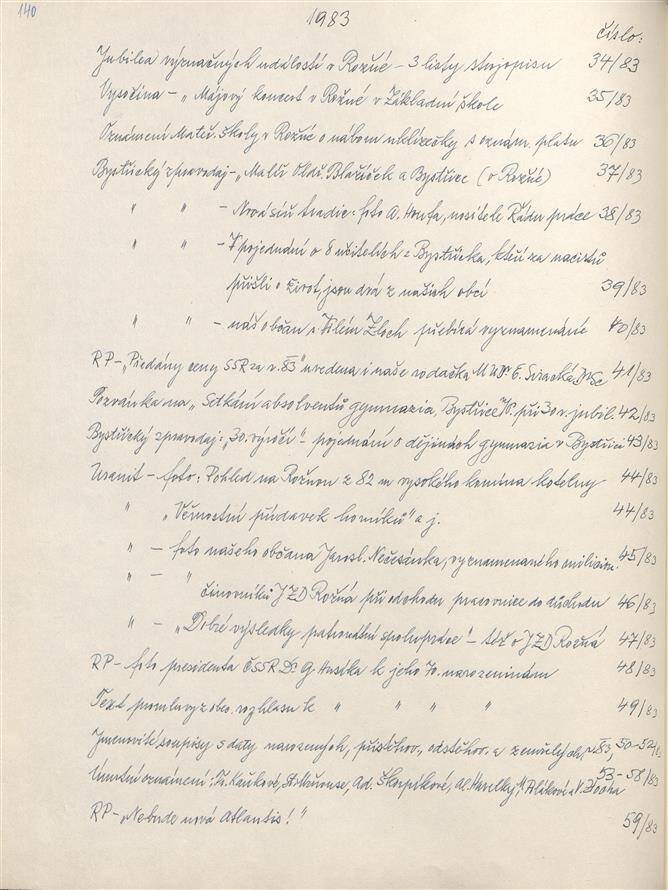 140
1983
číslo:
Jubilea význačných událostí v Rožné - 3 listy strojopisu 34/83
Vysočina - „Májový koncert v Rožné v Základní škole 35/83
Oznámení Mateř. školy v Rožné o náboru uklízečky s oznám. platu 36/83
Bystřický zpravodaj - „Malíř Oldř. Blažíček a Bystřice (v Rožné) 37/83
" " - Nová séu tradic: foto A. Houfa, nositele Řádu práce 38/83
" " - V pojednání o 8 učitelích z Bystřicka, kteří za nacistů
přišli o život, jsou dva z našich obcí 39/83
" " - náš občan s. Vilém Zloch přebírá vyznamenání 40/83
RP - „Předány ceny SSR za r. 83" uvedena i naše rodačka MUDr. E. DrSc 41/83
Pozvánka na „Setkání absolventů gymnazia, Bystřice /P. při 30.v. jubil. 42/83
Bystřický zpravodaj: „30. výročí" - pojednání o dějinách gymnazia v Bystřici 43/83
Uranit - foto: Pohled na Rožnou z 82 m vysokého komína kotelny 44/83
" „Věrnostní přídavek horníků" a j. 44/83
" - foto našeho občana Jarosl. Nečesánka, vyznamenaného milicion. 45/83
" - " činovníků JZD Rožná při odchodu pracovnice do důchodu 46/83
" - „Dobré výsledky patronátní spolupráce" - též o JZD Rožná 47/83
RP - foto presidenta ČSSR Dr G Husáka k jeho 70. narozeninám 48/83
Text promluvy z obec. rozhlasu k " " " " 49/83
Jmenovité soupisy s daty narozených, přistěhov., odstěhov. a zemřelých, r. 83, 50-52/83
Úmrtní oznámení: Fr. Kaukové, Ad. Škorpíkové, Al. Havelky, 53-58/83
RP - „Nebude nová Atlantis!" 59/83